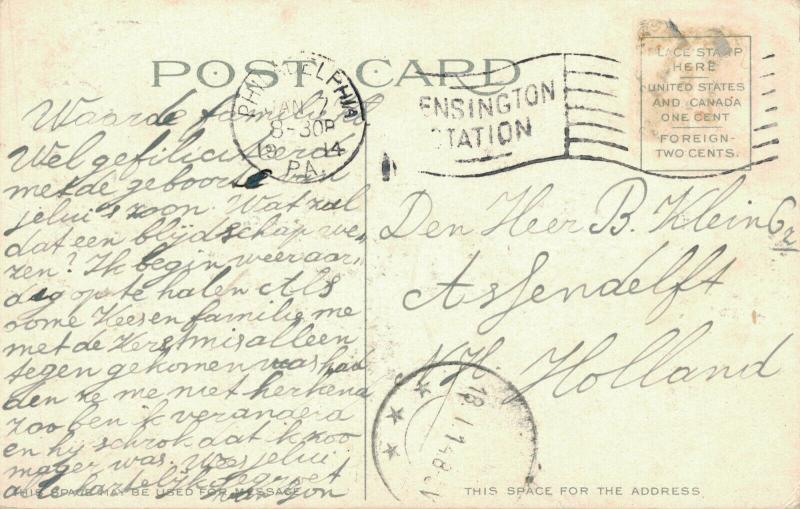 POST CARD
PHILADELPHIA
JAN 7
8-30P
1914
PA.
ENSINGTON
STATION
PLACE STAMP
HERE
UNITED STATES
AND CANADA
ONE CENT
FOREIGN-
TWO CENTS.
Waarde familie
Wel gefiliciteerd
met de geboorte
jelui's zoon. Wat zal
dat een blijdschap we„
zen? Ik begin weer aar„
dig op te halen Als
oome Kees en familie me
met de Kerstmis alleen
tegen gekomen was had„
den ze me niet herkend
zoo ben ik veranderd
en hij schrok dat ik zoo
mager was. Wees jelui
alle hartelijk gegroet
THIS SPACE MAY BE USED FOR MESSAGE
Den Heer B. Klein Gz
Assendelft
N.H. Holland
THIS SPACE FOR THE ADDRESS